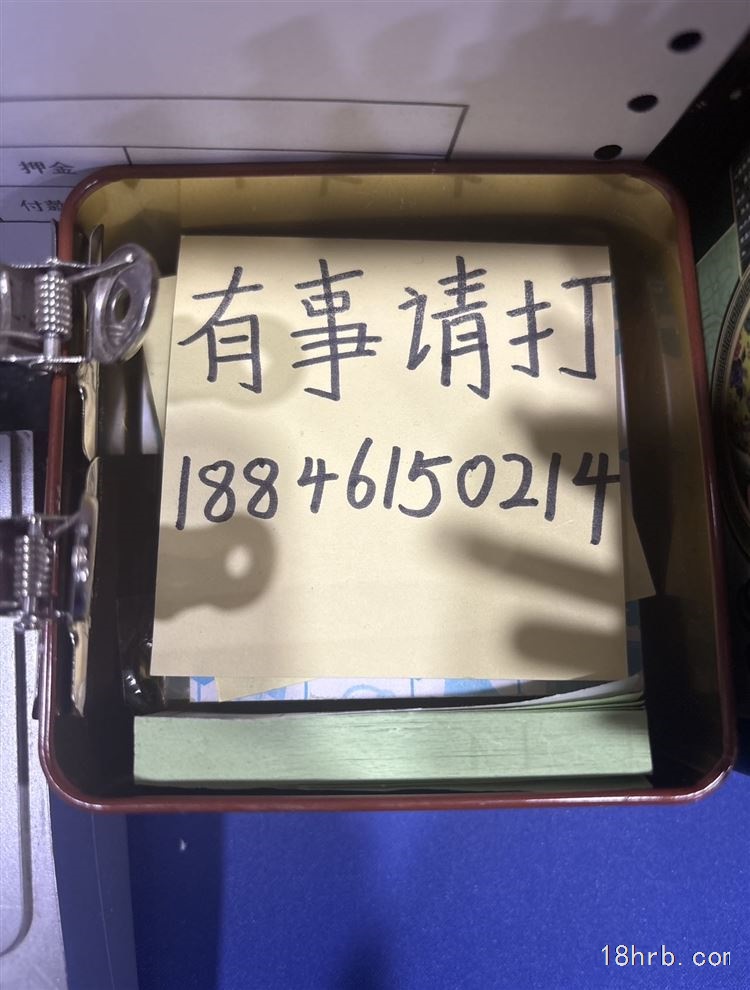 押金
付款
有事请打
18846150214
18hrb.com